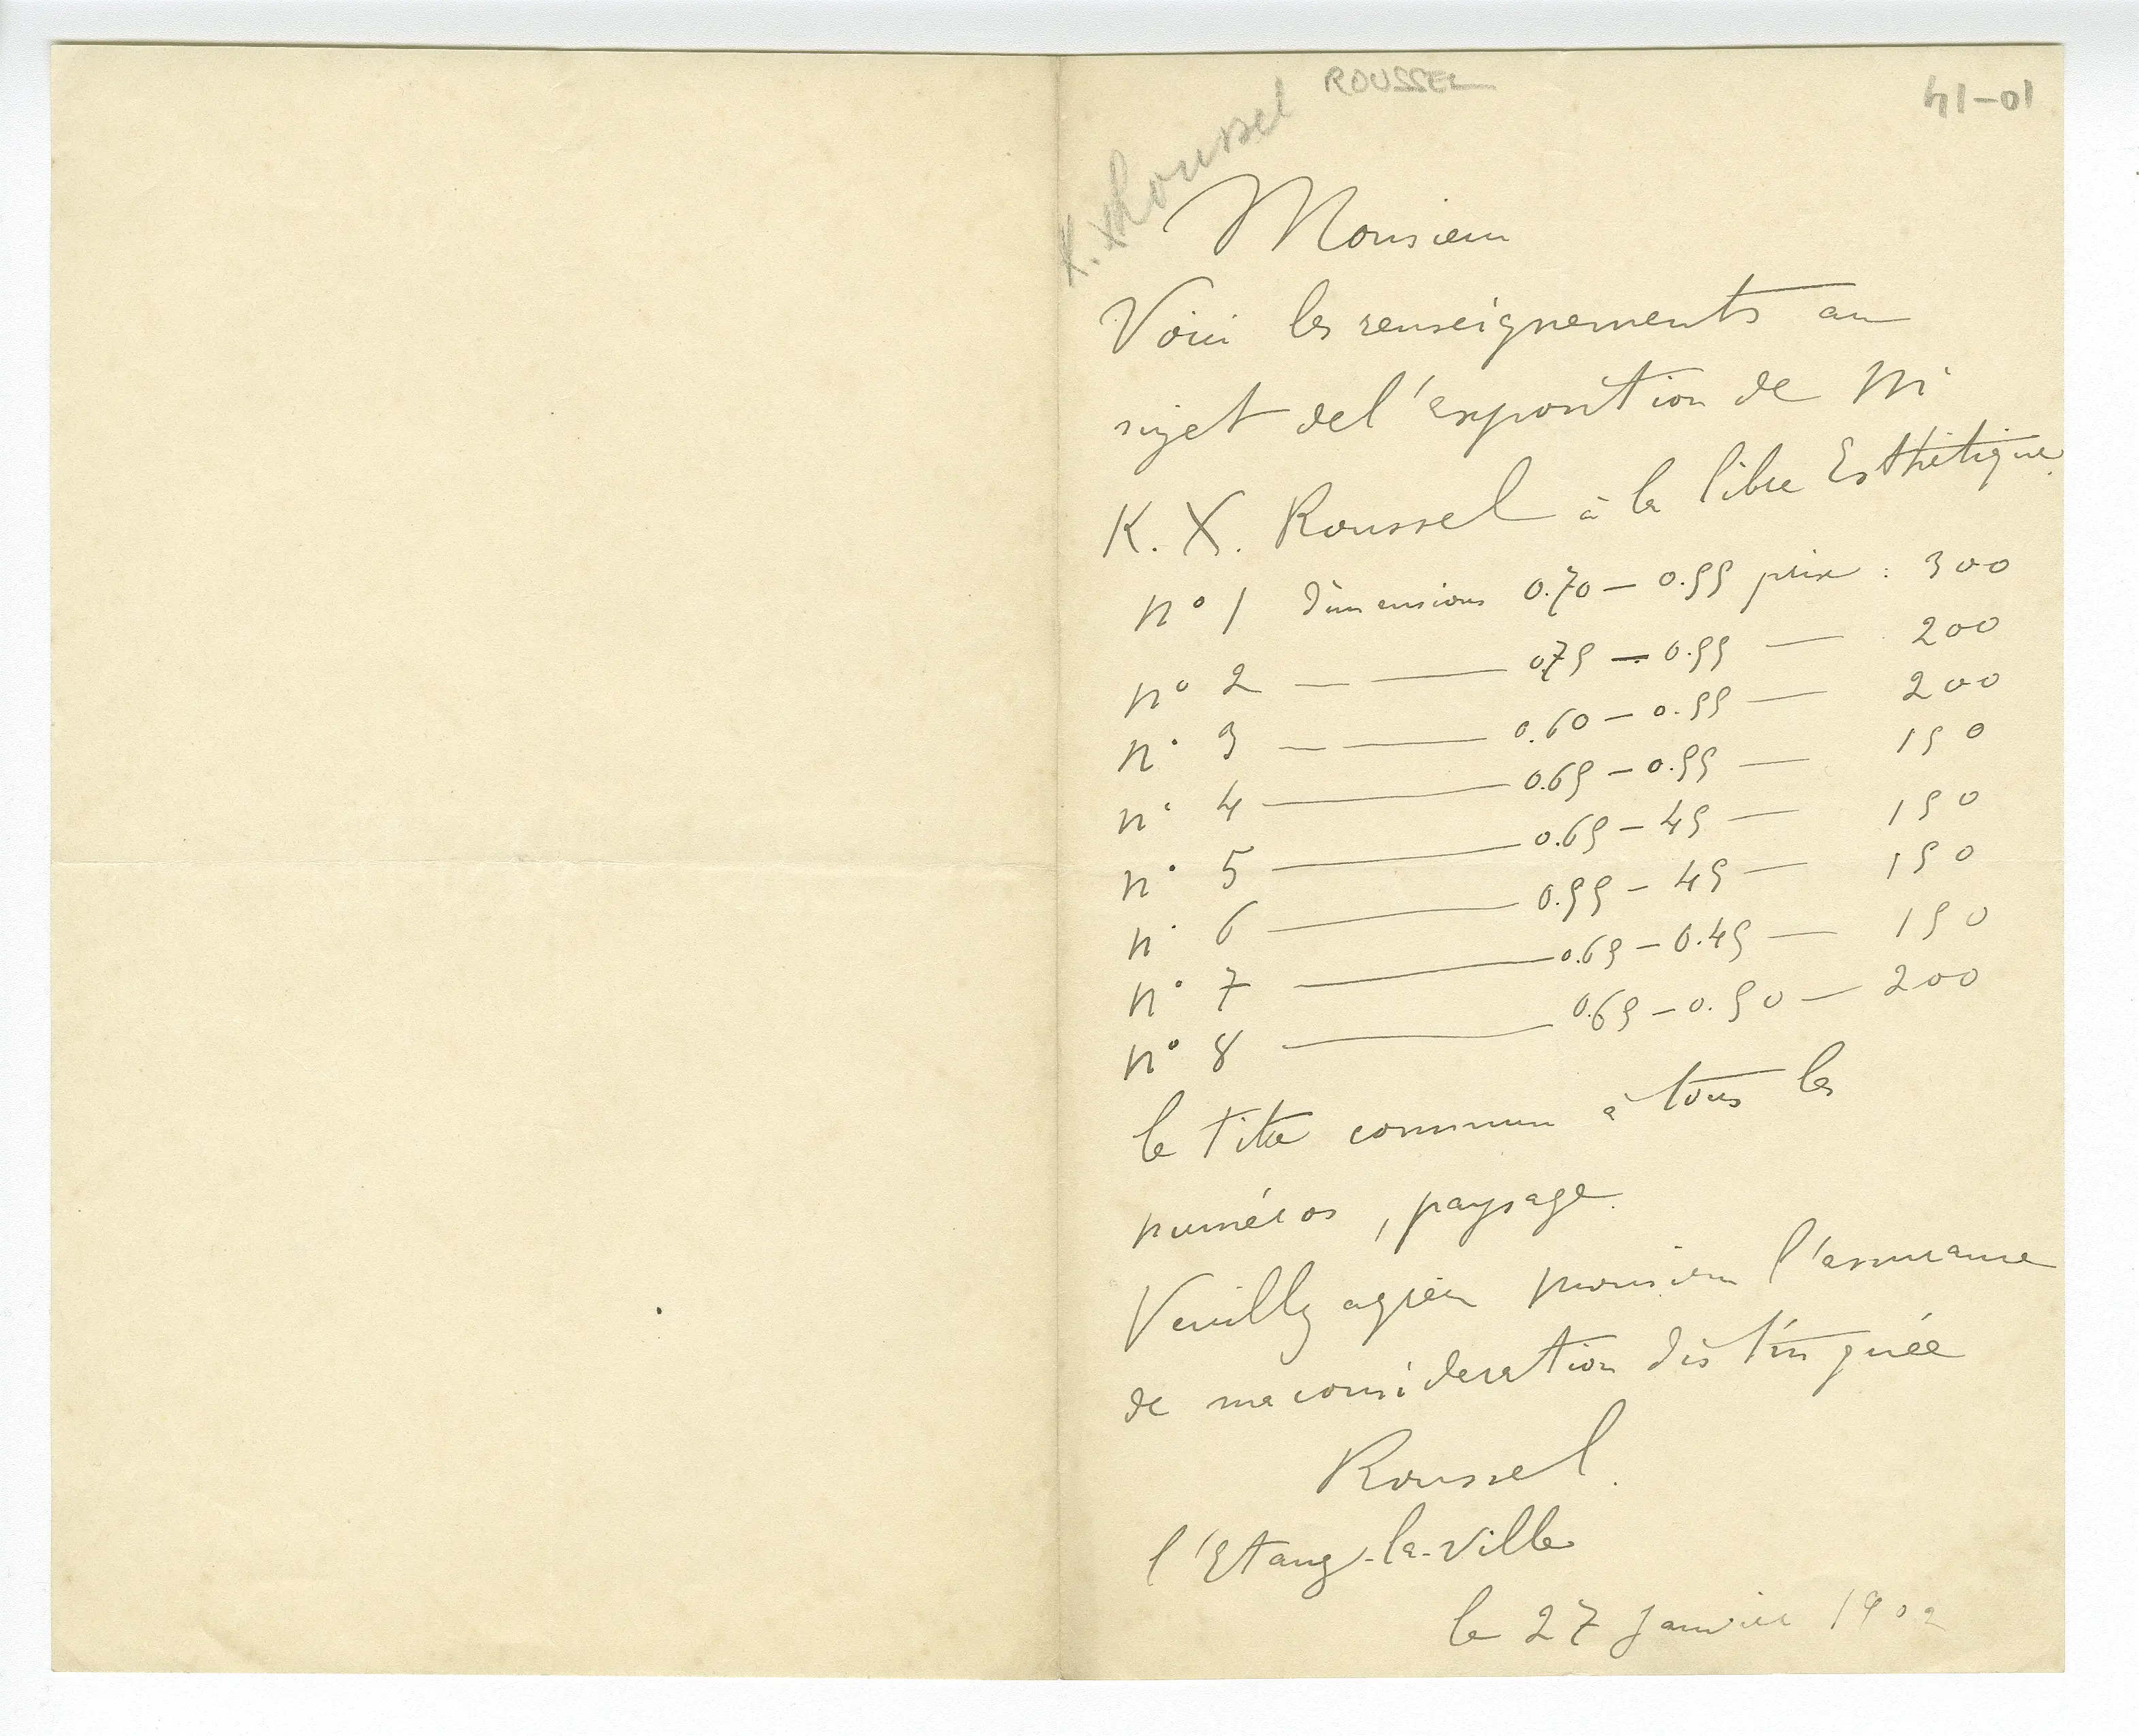 ROUSSEL
41-01
K. X Roussel
Monsieur
Voici les renseignements au
sujet de l'exposition de Mr
K. X. Roussel à la libre Esthétique.
n° 1 dimensions 0.70 — 0.55 prix : 300
n° 2 — — 0.75 — 0.55 — 200
n° 3 — — 0.60 — 0.55 — 200
n° 4 — 0.65 — 0.55 — 150
n° 5 — 0.65 — 45 — 150
n° 6 — 0.55 — 45 — 150
n° 7 — 0.65 — 0.45 — 150
n° 8 — 0.65 — 0.50 — 200
le titre commun à tous les
numéros, paysage.
Veuillez agréer monsieur l'assurance
de ma consideration distinguée
Roussel.
l'Etang-la-Ville
le 27 Janvier 1902